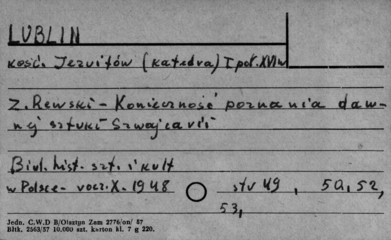 LUBLIN
kość. Jezuitów (katedra) I poł. XVII w
Z. Rewski - Konieczność poznania daw-
nej sztuki Szwajcarii
Biul. hist. szt. i kult
w Polsce - rocz. X. - 1948 str 49, 50, 52,
53,
Jedn. C.W.D B/Olsztyn Zam 2776/on/ 57
Bltk. 2563/57 10.000 szt. karton kl. 7 g 220.